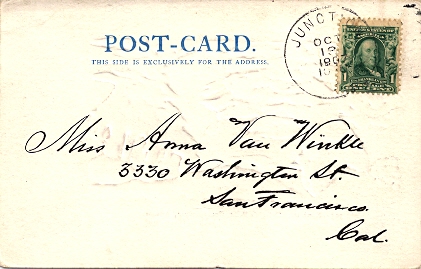 POST-CARD.
THIS SIDE IS EXCLUSIVELY FOR THE ADDRESS.
OCT
1
Miss Anna Van Winkle
3330 Washington St.
San Francisco.
Cal.